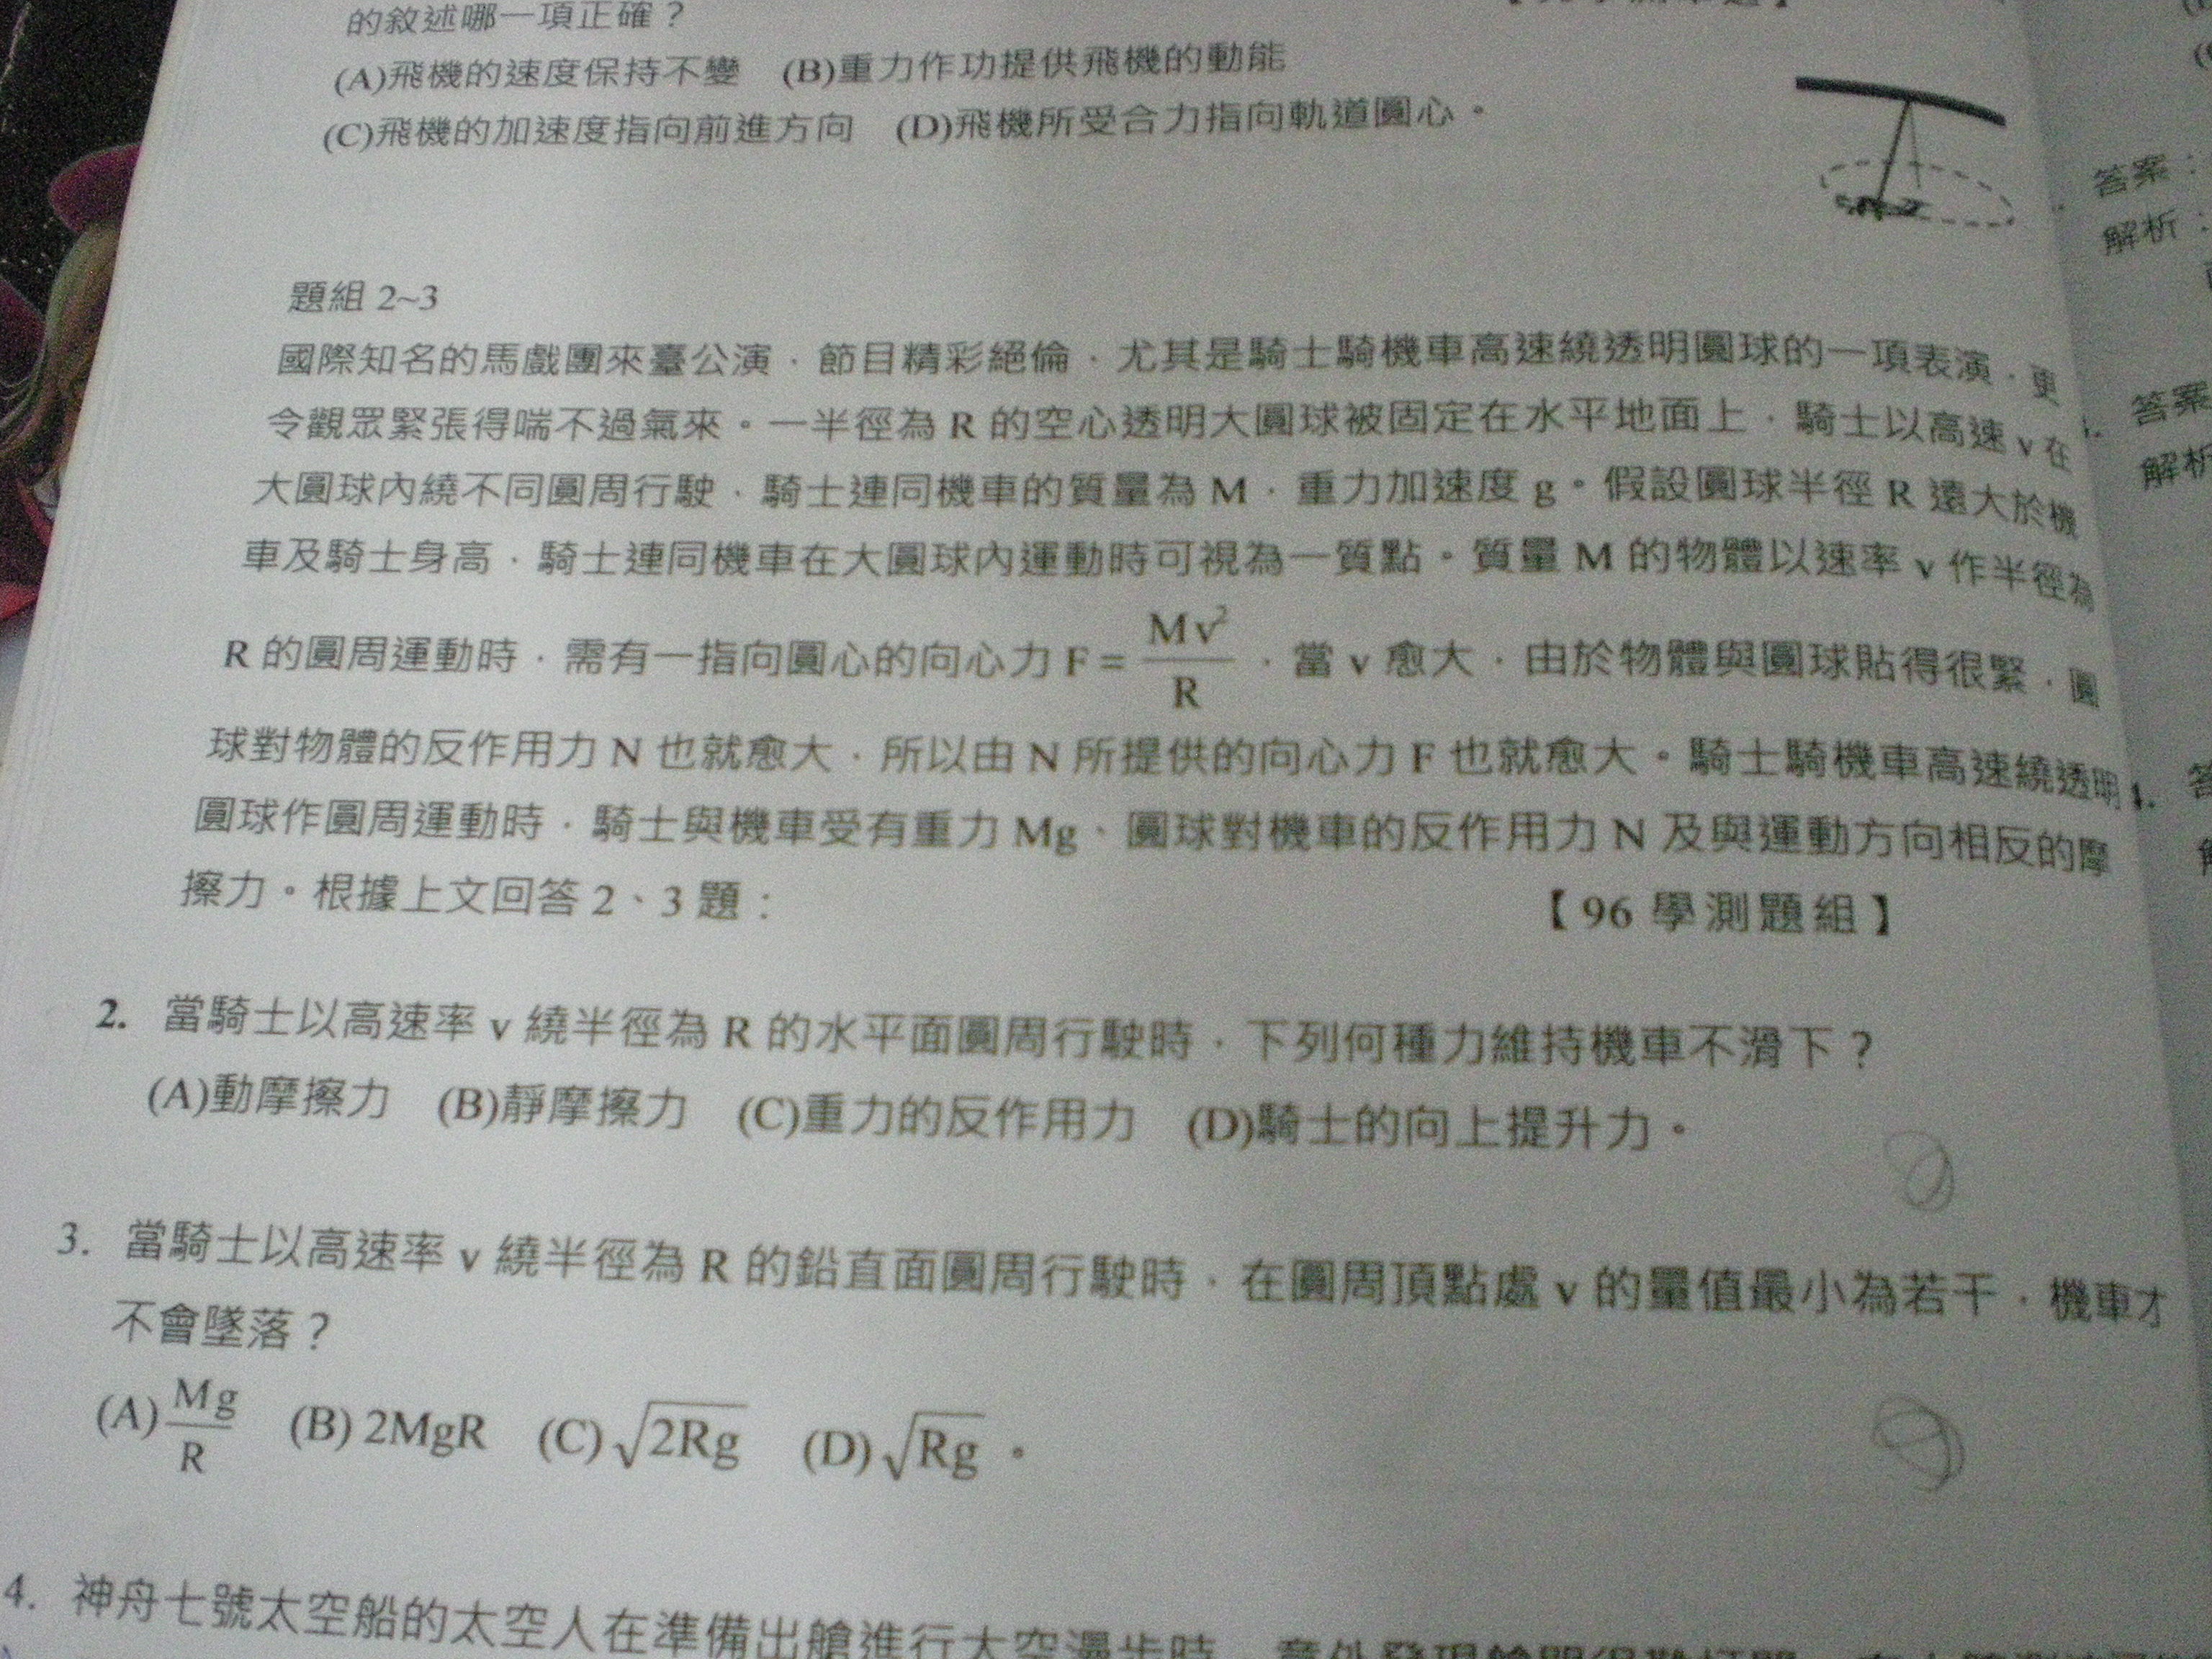 的敘述哪一項正確？
(A)飛機的速度保持不變 (B)重力作功提供飛機的動能
(C)飛機的加速度指向前進方向 (D)飛機所受合力指向軌道圓心。
答案：
解析：
題組 2~3
國際知名的馬戲團來臺公演，節目精彩絕倫，尤其是騎士騎機車高速繞透明圓球的一項表演，更
令觀眾緊張得喘不過氣來。一半徑為 R 的空心透明大圓球被固定在水平地面上，騎士以高速 v 在
大圓球內繞不同圓周行駛，騎士連同機車的質量為 M，重力加速度 g。假設圓球半徑 R 遠大於機
車及騎士身高，騎士連同機車在大圓球內運動時可視為一質點。質量 M 的物體以速率 v 作半徑為
R 的圓周運動時，需有一指向圓心的向心力 F = Mv²/R，當 v 愈大，由於物體與圓球貼得很緊，圓
球對物體的反作用力 N 也就愈大，所以由 N 所提供的向心力 F 也就愈大。騎士騎機車高速繞透明
圓球作圓周運動時，騎士與機車受有重力 Mg、圓球對機車的反作用力 N 及與運動方向相反的摩
擦力。根據上文回答 2、3 題：
【96 學測題組】
答案
解析
2. 當騎士以高速率 v 繞半徑為 R 的水平面圓周行駛時，下列何種力維持機車不滑下？
(A)動摩擦力 (B)靜摩擦力 (C)重力的反作用力 (D)騎士的向上提升力。
3. 當騎士以高速率 v 繞半徑為 R 的鉛直面圓周行駛時，在圓周頂點處 v 的量值最小為若干，機車才
不會墜落？
(A) Mg/R (B) 2MgR (C) √2Rg (D) √Rg 。
4. 神舟七號太空船的太空人在準備出艙進行太空漫步時，意外發現艙門很難打開